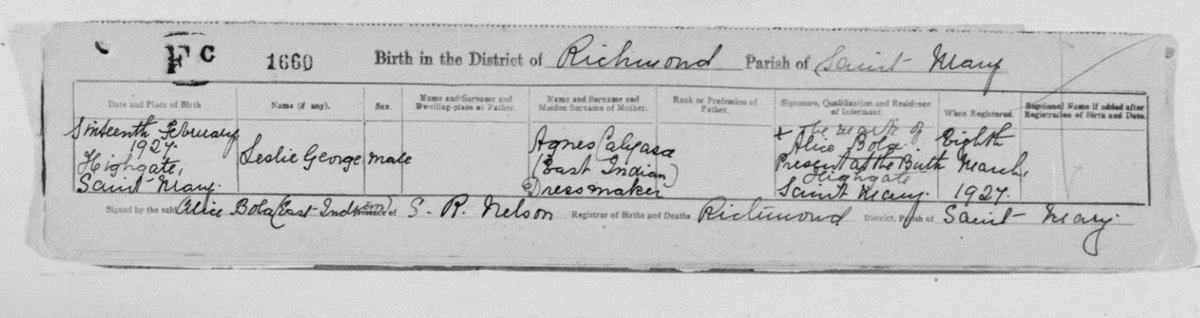 Fc 1660 Birth in the District of Richmond Parish of Saint Mary
Date and Place of Birth Name (if any). Sex. Name and Surname and Dwelling-place of Father. Name and Surname and Maiden Surname of Mother. Rank or Profession of Father. Signature, Qualification and Residence of Informant. When Registered. Baptismal Name if added after Registration of Birth and Date.
Sixteenth February
1927
Highgate,
Saint Mary.
Leslie George
male
Agnes
(East Indian)
Dressmaker
x The mark of
Alice Bola
Present at the Birth
Highgate
Saint Mary.
Eighth
March,
1927.
Signed by the said Alice Bola (East Indian) in presence of S. R. Nelson Registrar of Births and Deaths Richmond District, Parish of Saint Mary.